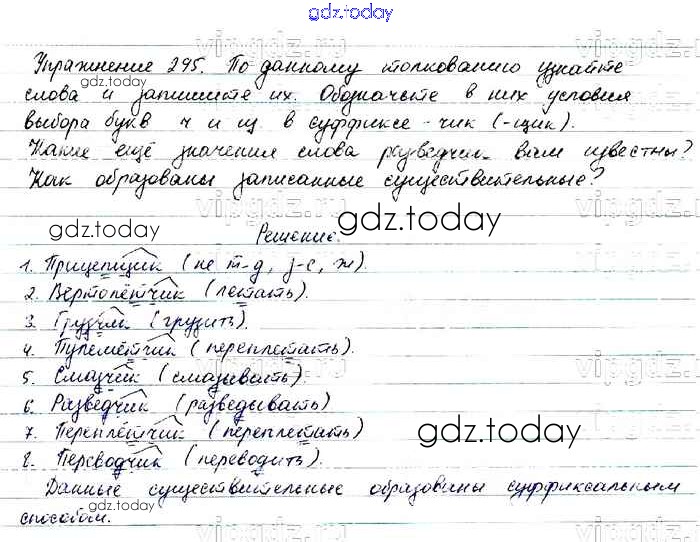 gdz.today
Упражнение 245. По данному толкованию узнайте
gdz.today
слова и запишите их. Обозначьте в них условия
выбора букв ч и щ в суффиксе -чик (-щик).
Какие ещё значения слова разведчик вам известны?
Как образованы записанные существительные?
gdz.today gdz.today
Решение.
1. Прицепщик (не т-д, з-с, ж).
2. Вертолётчик (летать).
3. Грузчик (грузить).
4. Пулемётчик (переплетать).
gdz.today
5. Смазчик (смазывать).
6. Разведчик (разведывать)
7. Переплётчик (переплетать)
gdz.today
8. Переводчик (переводить).
Данные существительные образованы суффиксальным
способом.
gdz.today
vipgdz.ru